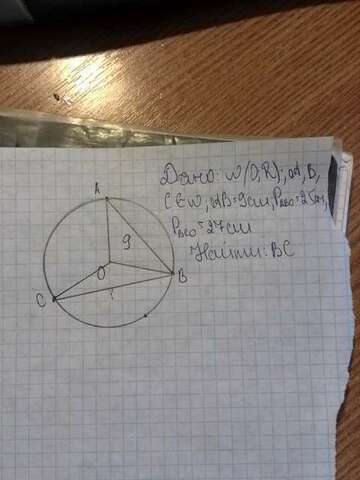 Дано: w(O,R), A, B,
C ∈ w, AB=9см, P_ABO=25см,
P_BCO=27см
Найти: BC
A
9
O
B
C
?